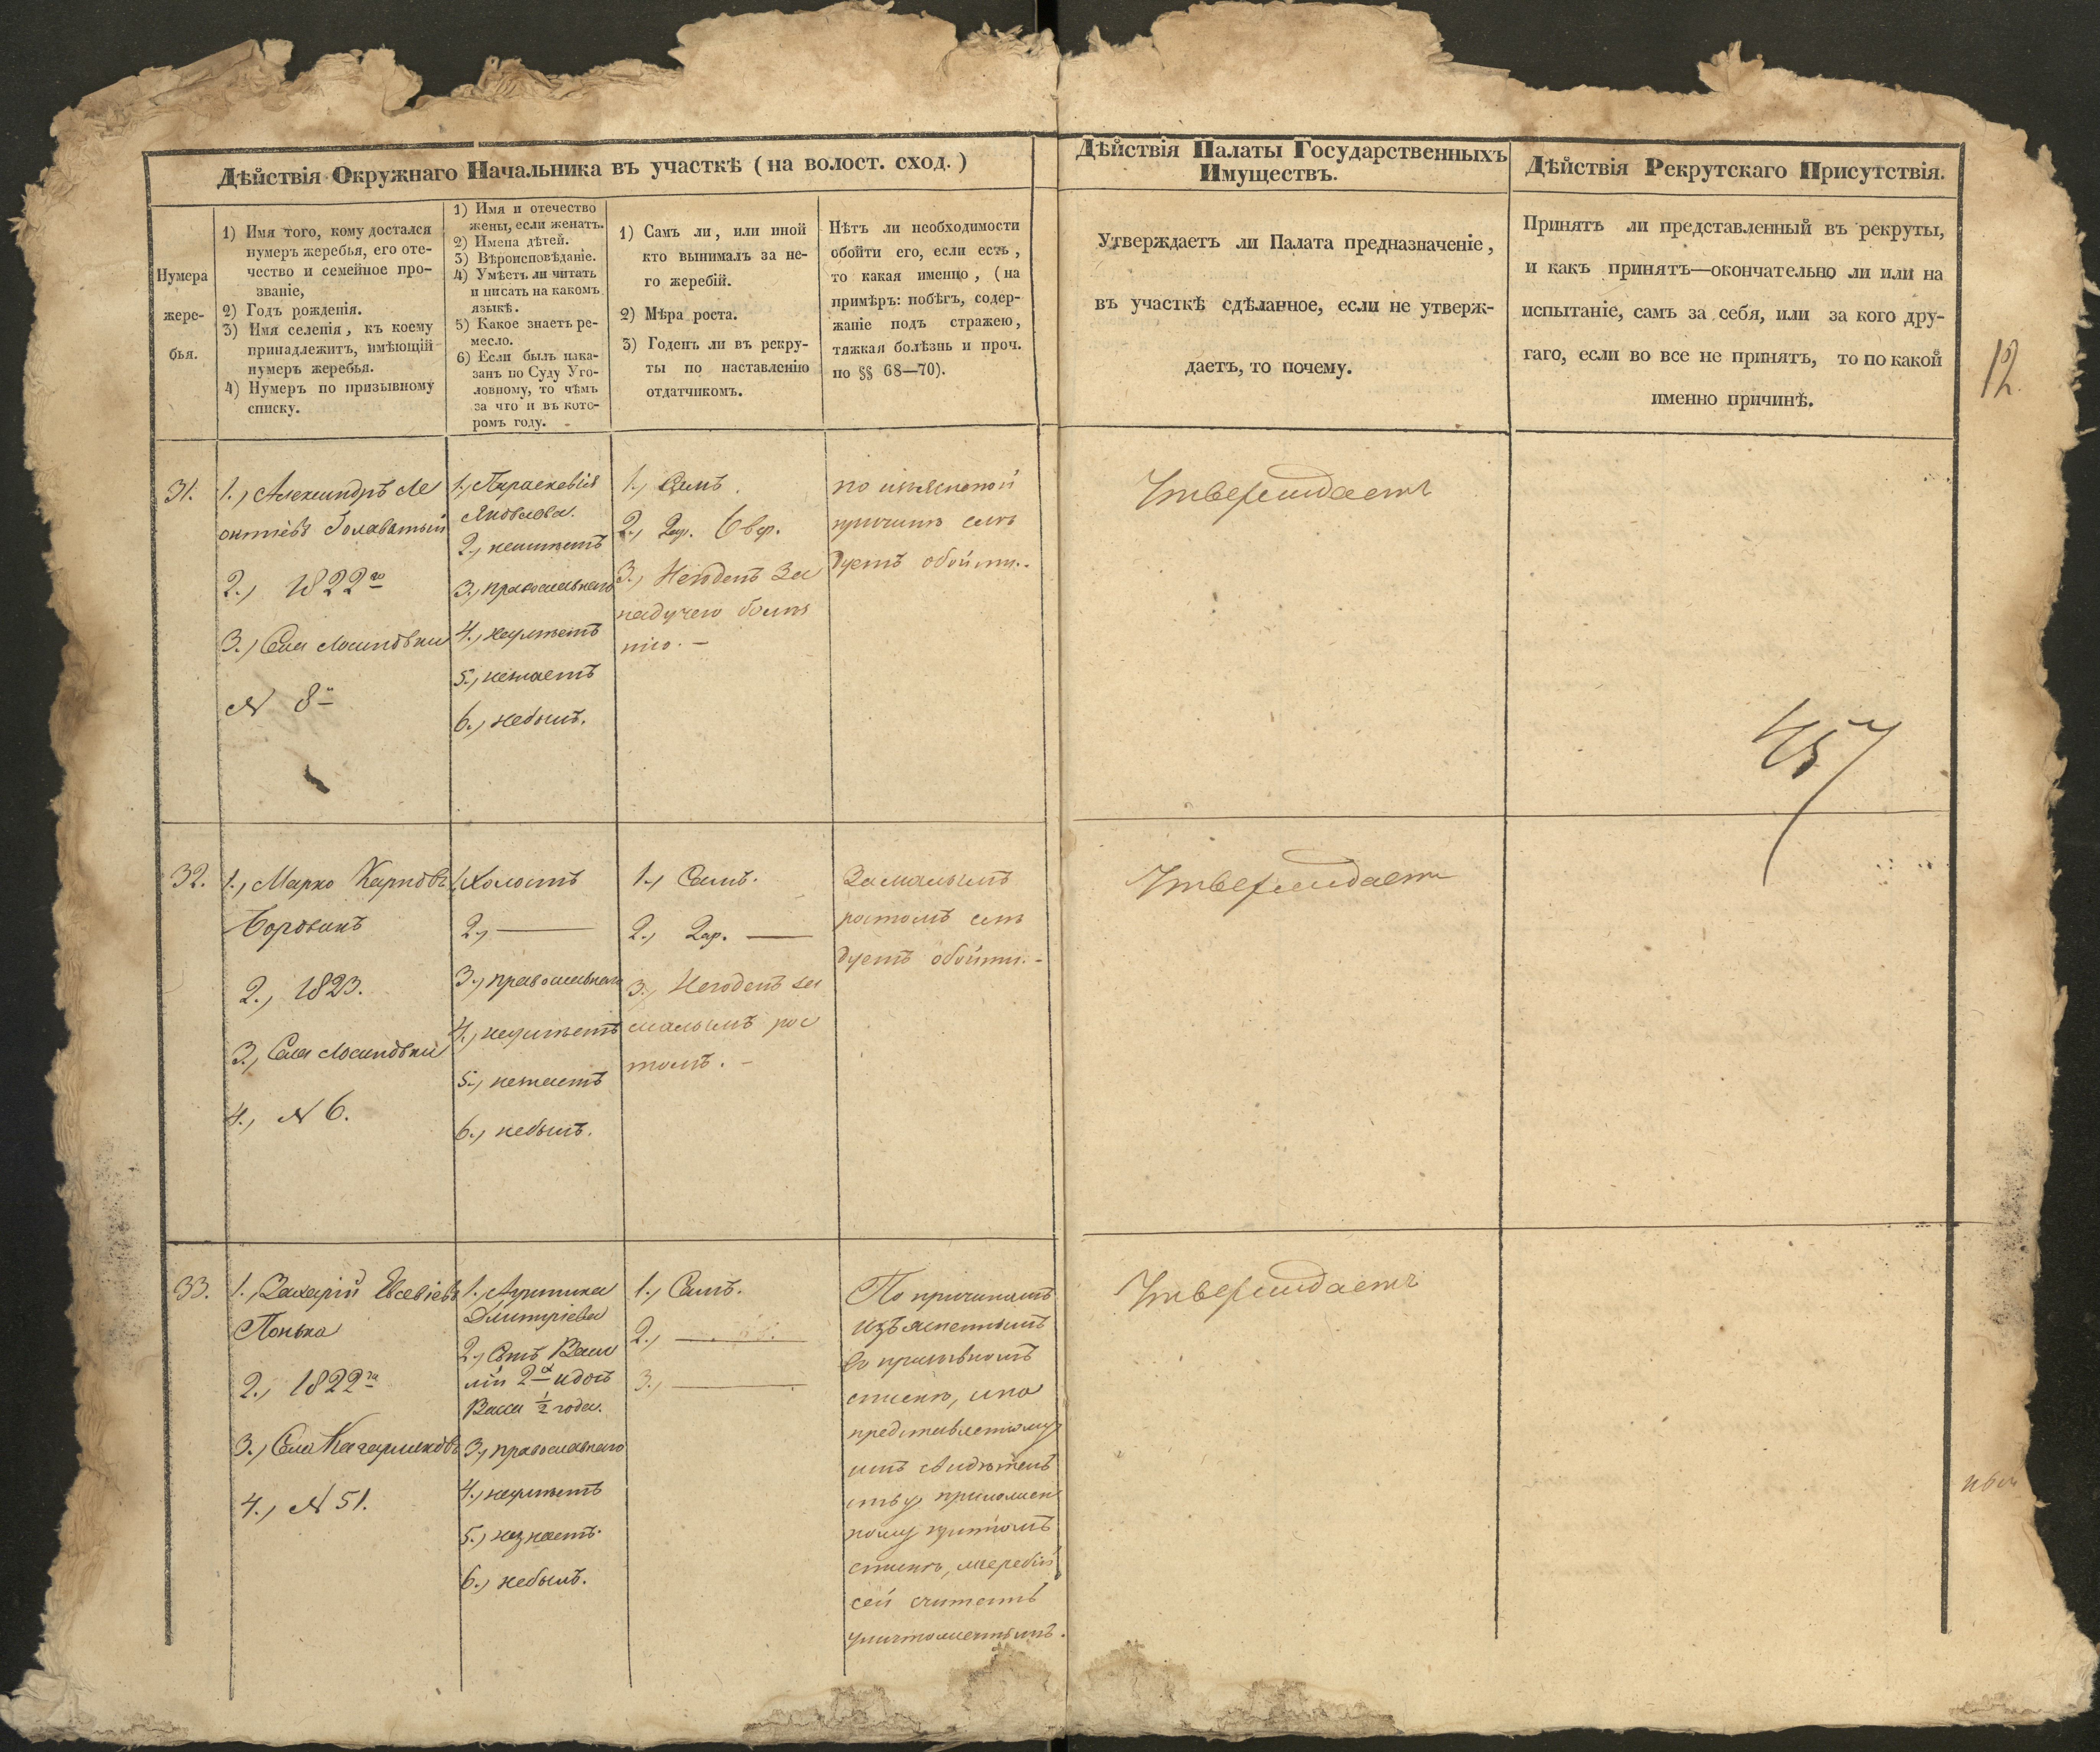 Дѣйствія Окружнаго Начальника въ участкѣ (на волост. сход.)
Нумера
жере-
бья.
1) Имя того, кому достался
нумеръ жеребья, его оте-
чество и семейное про-
званіе,
2) Годъ рожденія.
3) Имя селенія, къ коему
принадлежитъ, имѣющій
нумеръ жеребья.
4) Нумеръ по призывному
списку.
1) Имя и отечество
жены, если женатъ.
2) Имена дѣтей.
3) Вѣроисповѣданіе.
4) Умѣетъ ли читать
и писать на какомъ
языкѣ.
5) Какое знаетъ ре-
месло.
6) Если былъ нака-
занъ по Суду Уго-
ловному, то чѣмъ
за что и въ кото-
ромъ году.
1) Самъ ли, или иной
кто вынималъ за не-
го жеребій.
2) Мѣра роста.
3) Годенъ ли въ рекру-
ты по наставленію
отдатчикомъ.
Нѣтъ ли необходимости
обойти его, если есть,
то какая именно, (на
примѣръ: побѣгъ, содер-
жаніе подъ стражею,
тяжкая болѣзнь и проч.
по §§ 68—70).
Дѣйствія Палаты Государственныхъ
Имуществъ.
Утверждаетъ ли Палата предназначеніе,
въ участкѣ сдѣланное, если не утверж-
даетъ, то почему.
Дѣйствія Рекрутскаго Присутствія.
Принятъ ли представленный въ рекруты,
и какъ принятъ—окончательно ли или на
испытаніе, самъ за себя, или за кого дру-
гаго, если во все не принятъ, то по какой
именно причинѣ.
12.
31.
1., Александръ Ле
онтіевъ Головатый
2., 1822го
3., Села Лосиновки
N 8й
1., Параскевія
Яковлева.
2., неимѣетъ
3., православнаго
4., неумѣетъ
5., незнаетъ
6., небылъ.
1., Самъ.
2., 2ар. 6 вер.
3., Негоденъ за
падучею болѣз
нію. —
по изъясненой
причинѣ слѣ
дуетъ обойти. -
Утверждаетъ
457
32.
1., Марко Карповъ
Боровикъ
2., 1823.
3., Села Лосиновки
4., N 6.
1., Холостъ
2., —
3., православнаго
4., неумѣетъ
5., незнаетъ
6., небылъ.
1., Самъ.
2., 2ар. —
3., Негоденъ за
малымъ рос
томъ. —
За малымъ
ростомъ слѣ
дуетъ обойти. -
Утверждаетъ
33.
1., Захарій Евсевіевъ
Понька
2., 1822го
3., Села
4., N 51.
1.,
Димитріева
2., Сынъ Васи
лій 2х и дочь
Васса ½ года.
3., православнаго
4., неумѣетъ
5., незнаетъ.
6., небылъ.
1., Самъ.
2., —
3., —
По причинамъ
изъясненнымъ
въ призывномъ
списку, и по
представленному
имъ свидѣтель
ству, приложен
ному при томъ
списку, жеребій
сей считать
уничтоженнымъ.
Утверждаетъ